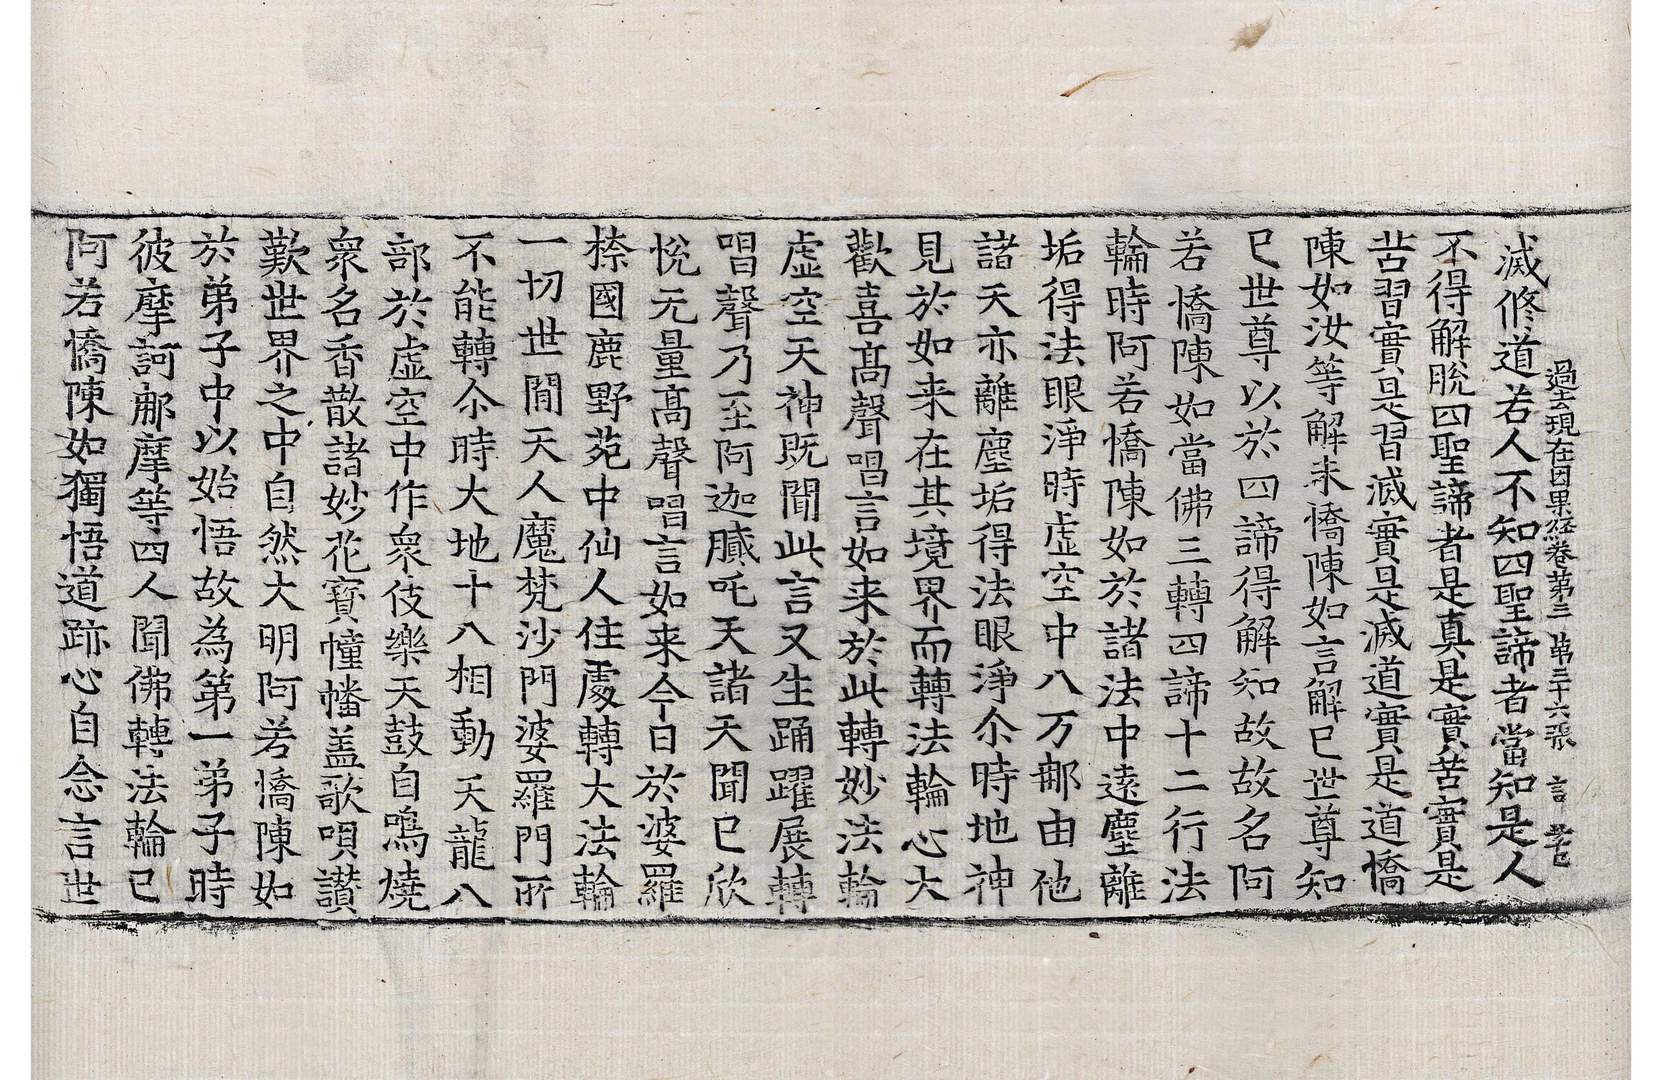 過去現在因果経卷第三 第三十六張 言
滅修道若人不知四聖諦者當知是人
不得解脫四聖諦者是真是實苦實是
苦習實是習滅實是滅道實是道憍
陳如汝等解未憍陳如言解已世尊知
已世尊以於四諦得解知故故名阿
若憍陳如當佛三轉四諦十二行法
輪時阿若憍陳如於諸法中遠塵離
垢得法眼淨時虛空中八万那由他
諸天亦離塵垢得法眼淨尒時地神
見於如来在其境界而轉法輪心大
歡喜髙聲唱言如来於此轉妙法輪
虛空天神既聞此言又生踊躍展轉
唱聲乃至阿迦膩吒天諸天聞已欣
悅无量髙聲唱言如来今日於婆羅
㮈國鹿野苑中仙人住處轉大法輪
一切世間天人魔梵沙門婆羅門所
不能轉尒時大地十八相動天龍八
部於虛空中作衆伎樂天鼓自鳴燒
衆名香散諸妙花寶幢幡盖歌唄讃
歎世界之中自然大明阿若憍陳如
於弟子中以始悟故為第一弟子時
彼摩訶那摩等四人聞佛轉法輪已
阿若憍陳如獨悟道跡心自念言世